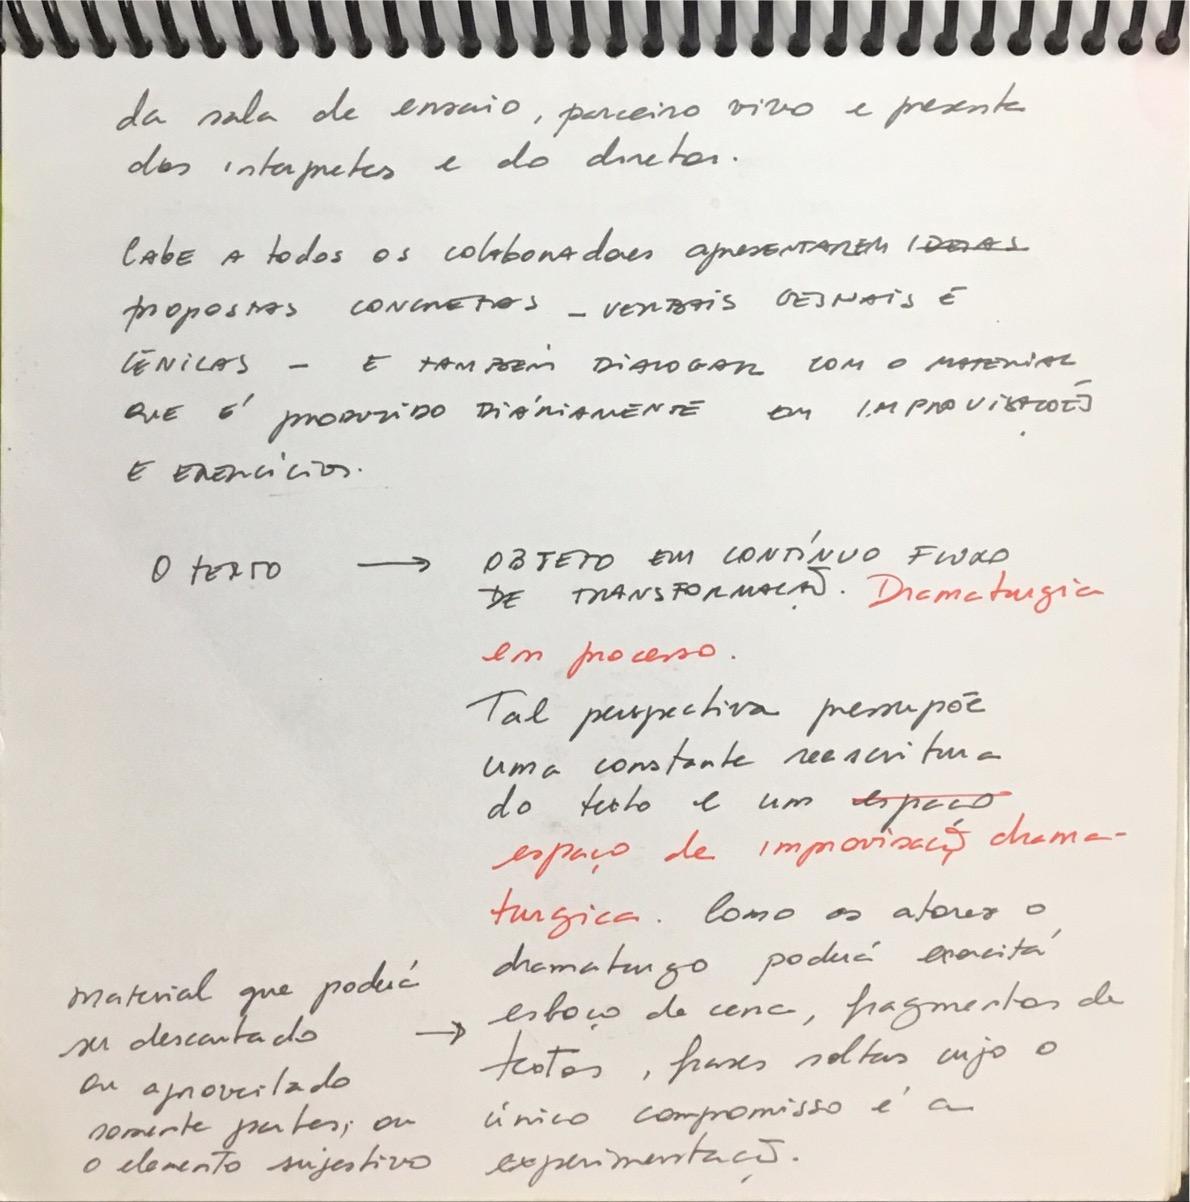 da sala de ensaio, parceiro vivo e presente
dos intérpretes e do diretor.
Cabe a todos os colaboradores apresentarem ideias
propostas concretas – verbais gesnais e
cênicas – e também dialogar com o material
que é produzido diáriamente em improvisações
e exercícios.
O texto → OBJETO EM CONTÍNUO FLUXO
DE TRANSFORMAÇÃO. Dramaturgia
em processo.
Tal perspectiva pressupõe
uma constante reescritura
do texto e um espaço
espaço de improvisação drama-
turgica. Como os atores o
dramaturgo poderá exercitá
esboço de cena, fragmentos de
textos, frases soltas cujo o
único compromisso é a
experimentação.
Material que poderá
ser descartado →
ou aproveitado
somente partes; ou
o elemento sujestivo